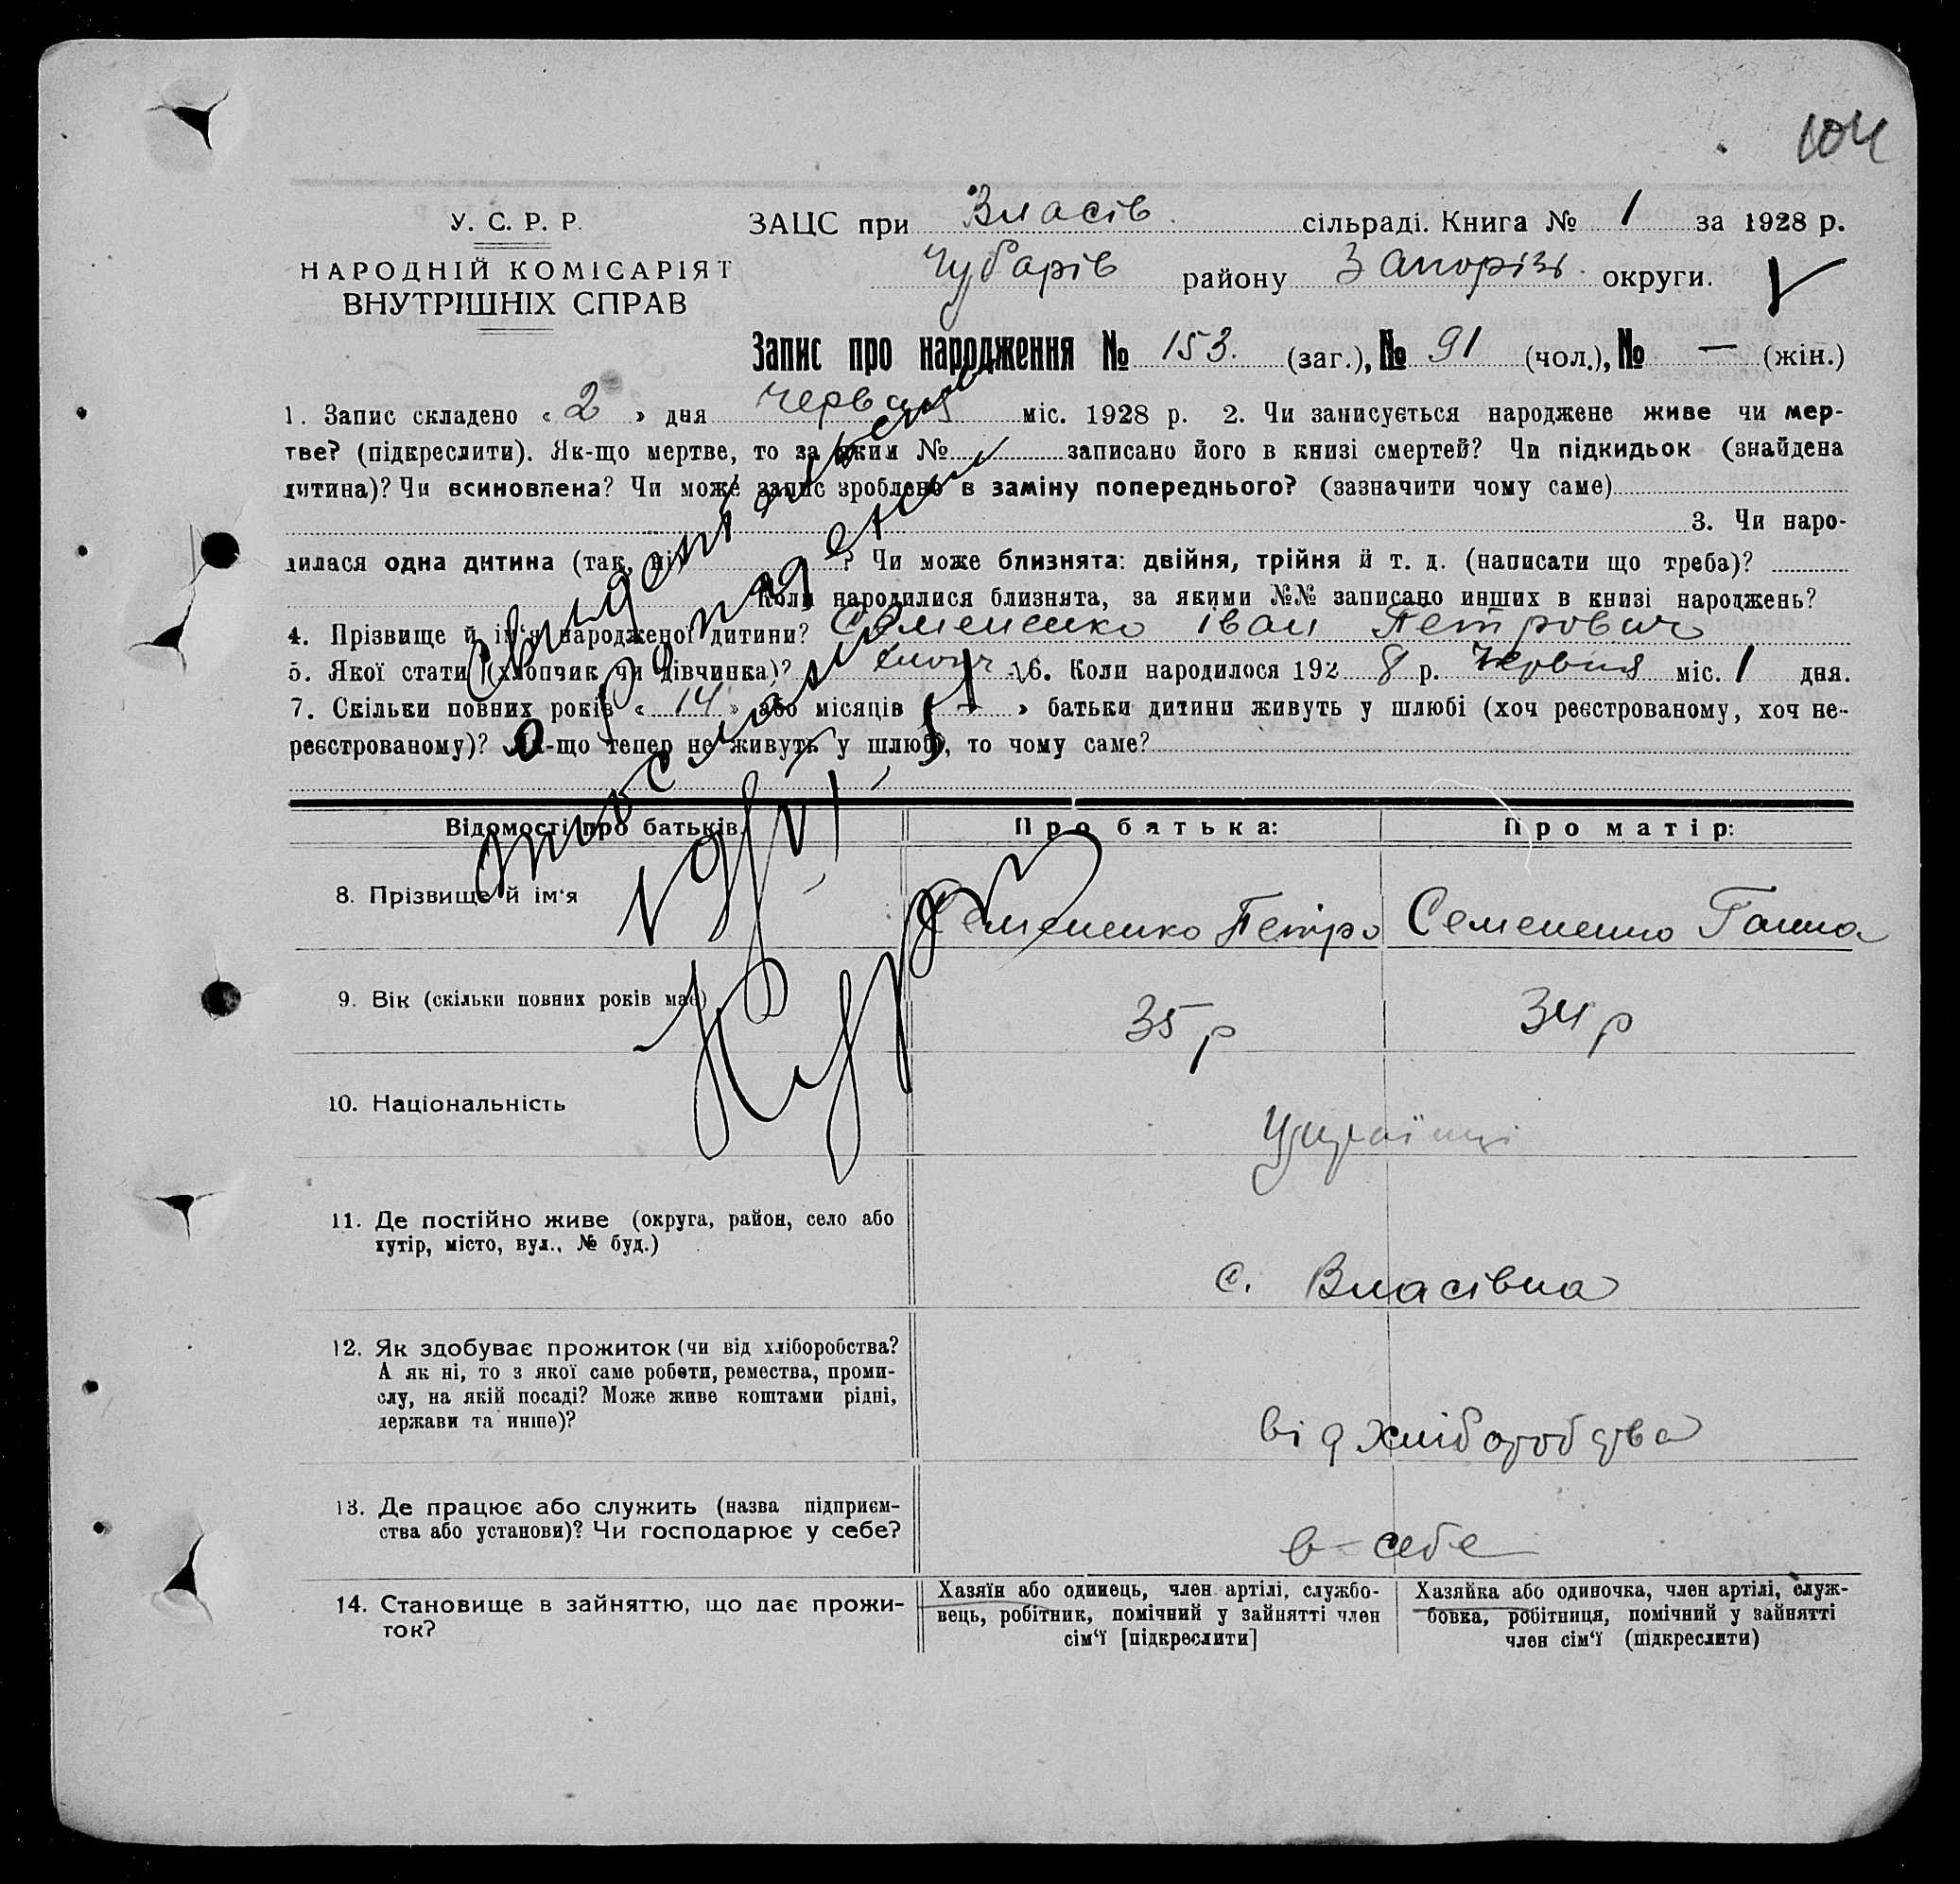 104
У. С. Р. Р.
НАРОДНІЙ КОМІСАРІЯТ
ВНУТРІШНІХ СПРАВ
ЗАЦС при Власів. сільраді. Книга № 1 за 1928 р.
Чубарів району Запоріз. округи.
Запис про народження № 153. (заг.), № 91 (чол.), № — (жін.)
1. Запис складено « 2 » дня червня міс. 1928 р. 2. Чи записується народжене живе чи мер-
тве? (підкреслити). Як-що мертве, то за яким № записано його в книзі смертей? Чи підкидьок (знайдена
дитина)? Чи всиновлена? Чи може запис зроблено в заміну попереднього? (зазначити чому саме)
3. Чи наро-
дилася одна дитина (так, ні) ? Чи може близнята: двійня, трійня й т. д. (написати що треба)?
Коли народилися близнята, за якими №№ записано инших в книзі народжень?
4. Прізвище й ім‘я народженої дитини? Семененко Іван Петрович
5. Якої стати (хлопчик чи дівчинка)? хлопч 6. Коли народилося 1928 р. Червня міс. 1 дня.
7. Скільки повних років « 14 » або місяців « » батьки дитини живуть у шлюбі (хоч реєстрованому, хоч не-
реєстрованому)? Як-що тепер не живуть у шлюбі, то чому саме?
Відомості про батьків. Про батька: Про матір:
8. Прізвище й ім‘я Семененко Петро Семененко Ганна
9. Вік (скільки повних років має) 35 р 34 р
10. Національність Українці
11. Де постійно живе (округа, район, село або
хутір, місто, вул., № буд.)
с. Власівка
12. Як здобуває прожиток (чи від хліборобства?
А як ні, то з якої саме роботи, ремества, проми-
слу, на якій посаді? Може живе коштами рідні,
держави та инше)?
від хліборобства
13. Де працює або служить (назва підприєм-
ства або установи)? Чи господарює у себе?
в себе
14. Становище в зайняттю, що дає прожи-
ток?
Хазяїн або одинець, член артілі, службо-
вець, робітник, помічний у зайнятті член
сім‘ї [підкреслити]
Хазяйка або одиночка, член артілі, служ-
бовка, робітниця, помічний у зайнятті
член сім‘ї (підкреслити)